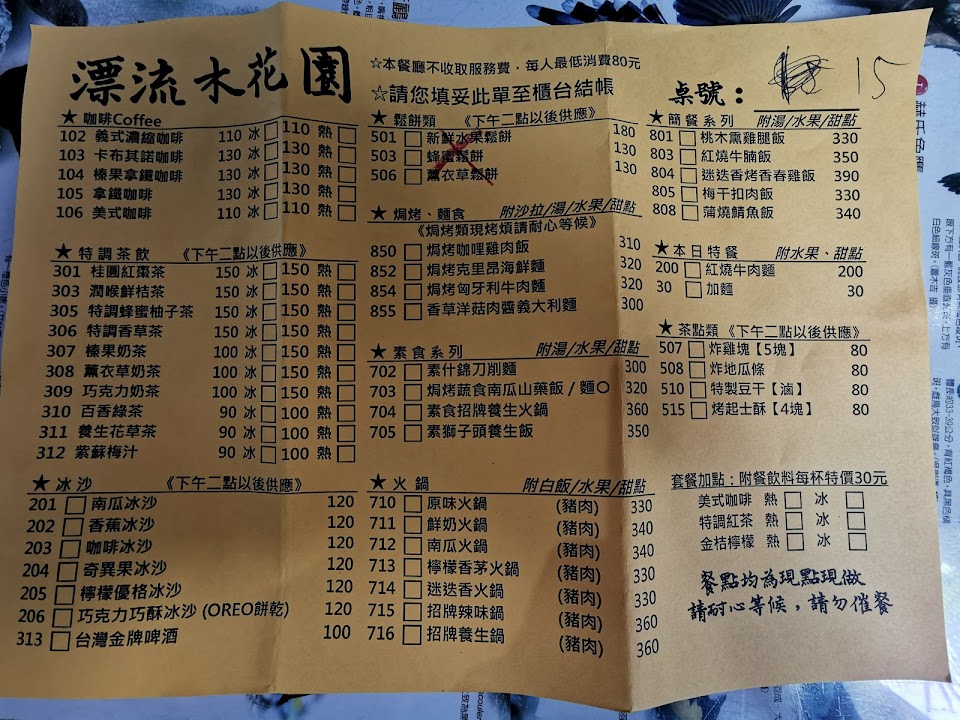 漂流木花園
☆本餐廳不收取服務費，每人最低消費80元
☆請您填妥此單至櫃台結帳
桌號： 15
★ 咖啡Coffee
102 義式濃縮咖啡 110 冰□ 110 熱□
103 卡布其諾咖啡 130 冰□ 130 熱□
104 榛果拿鐵咖啡 130 冰□ 130 熱□
105 拿鐵咖啡 130 冰□ 130 熱□
106 美式咖啡 110 冰□ 110 熱□
★ 特調茶飲 《下午二點以後供應》
301 桂圓紅棗茶 150 冰□ 150 熱□
303 潤喉鮮桔茶 150 冰□ 150 熱□
305 特調蜂蜜柚子茶 150 冰□ 150 熱□
306 特調香草茶 150 冰□ 150 熱□
307 榛果奶茶 100 冰□ 150 熱□
308 薰衣草奶茶 100 冰□ 150 熱□
309 巧克力奶茶 100 冰□ 150 熱□
310 百香綠茶 90 冰□ 100 熱□
311 養生花草茶 90 冰□ 100 熱□
312 紫蘇梅汁 90 冰□ 100 熱□
★ 冰沙 《下午二點以後供應》
201 □ 南瓜冰沙 120
202 □ 香蕉冰沙 120
203 □ 咖啡冰沙 120
204 □ 奇異果冰沙 120
205 □ 檸檬優格冰沙 120
206 □ 巧克力巧酥冰沙 (OREO餅乾) 120
313 □ 台灣金牌啤酒 100
★ 鬆餅類 《下午二點以後供應》
501 □ 新鮮水果鬆餅 180
503 □ 蜂蜜鬆餅 130
506 □ 薰衣草鬆餅 130
★ 焗烤、麵食 附沙拉/湯/水果/甜點
《焗烤類現烤煩請耐心等候》
850 □ 焗烤咖哩雞肉飯 310
852 □ 焗烤克里昂海鮮麵 320
854 □ 焗烤匈牙利牛肉麵 320
855 □ 香草洋菇肉醬義大利麵 300
★ 素食系列 附湯/水果/甜點
702 □ 素什錦刀削麵 300
703 □ 焗烤蔬食南瓜山藥飯 / 麵○ 320
704 □ 素食招牌養生火鍋 360
705 □ 素獅子頭養生飯 350
★ 火鍋 附白飯/水果/甜點
710 □ 原味火鍋 (豬肉) 330
711 □ 鮮奶火鍋 (豬肉) 340
712 □ 南瓜火鍋 (豬肉) 340
713 □ 檸檬香茅火鍋 (豬肉) 330
714 □ 迷迭香火鍋 (豬肉) 330
715 □ 招牌辣味鍋 (豬肉) 360
716 □ 招牌養生鍋 (豬肉) 360
★ 簡餐系列 附湯/水果/甜點
801 □ 桃木熏雞腿飯 330
803 □ 紅燒牛腩飯 350
804 □ 迷迭香烤香春雞飯 390
805 □ 梅干扣肉飯 330
808 □ 蒲燒鯖魚飯 340
★ 本日特餐 附水果、甜點
200 □ 紅燒牛肉麵 200
30 □ 加麵 30
★ 茶點類 《下午二點以後供應》
507 □ 炸雞塊【5塊】 80
508 □ 炸地瓜條 80
510 □ 特製豆干【滷】 80
515 □ 烤起士酥【4塊】 80
套餐加點：附餐飲料每杯特價30元
美式咖啡 熱□ 冰□
特調紅茶 熱□ 冰□
金桔檸檬 熱□ 冰□
餐點均為現點現做
請耐心等候，請勿催餐